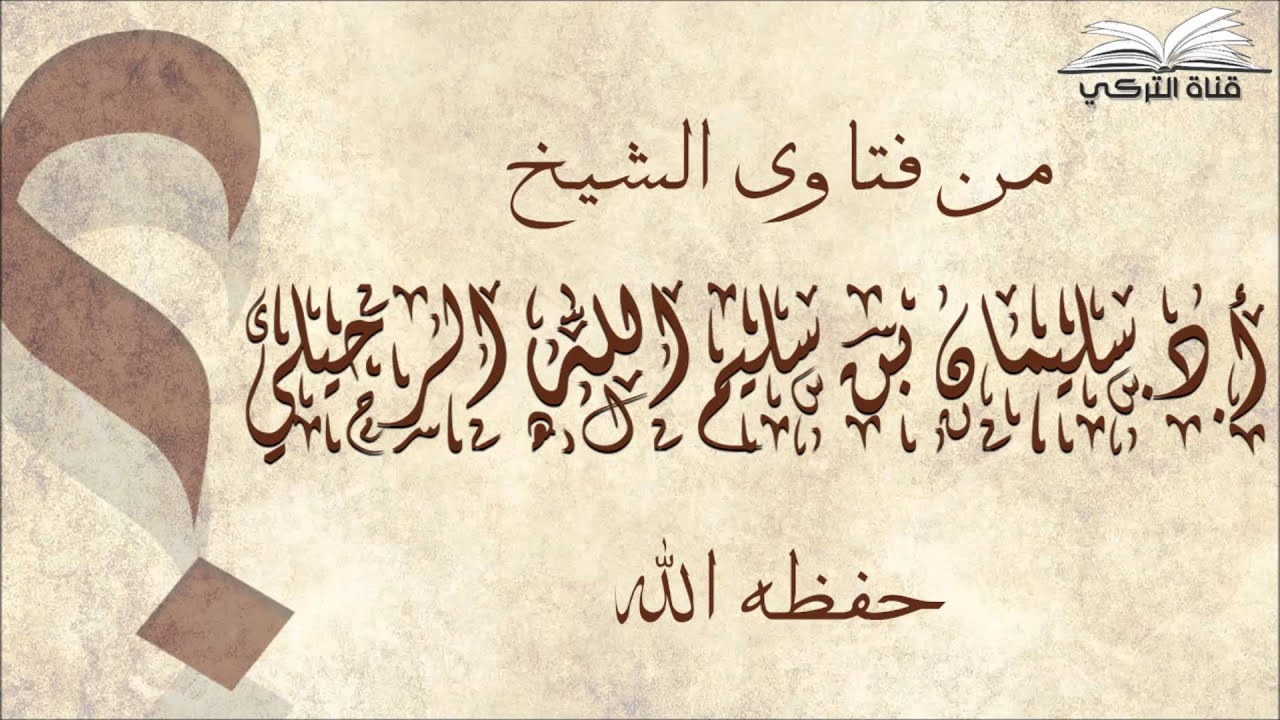 قناة التركي
من فتاوى الشيخ
أ.د.سليمان بن سليم الله الرحيلي
حفظه الله
؟